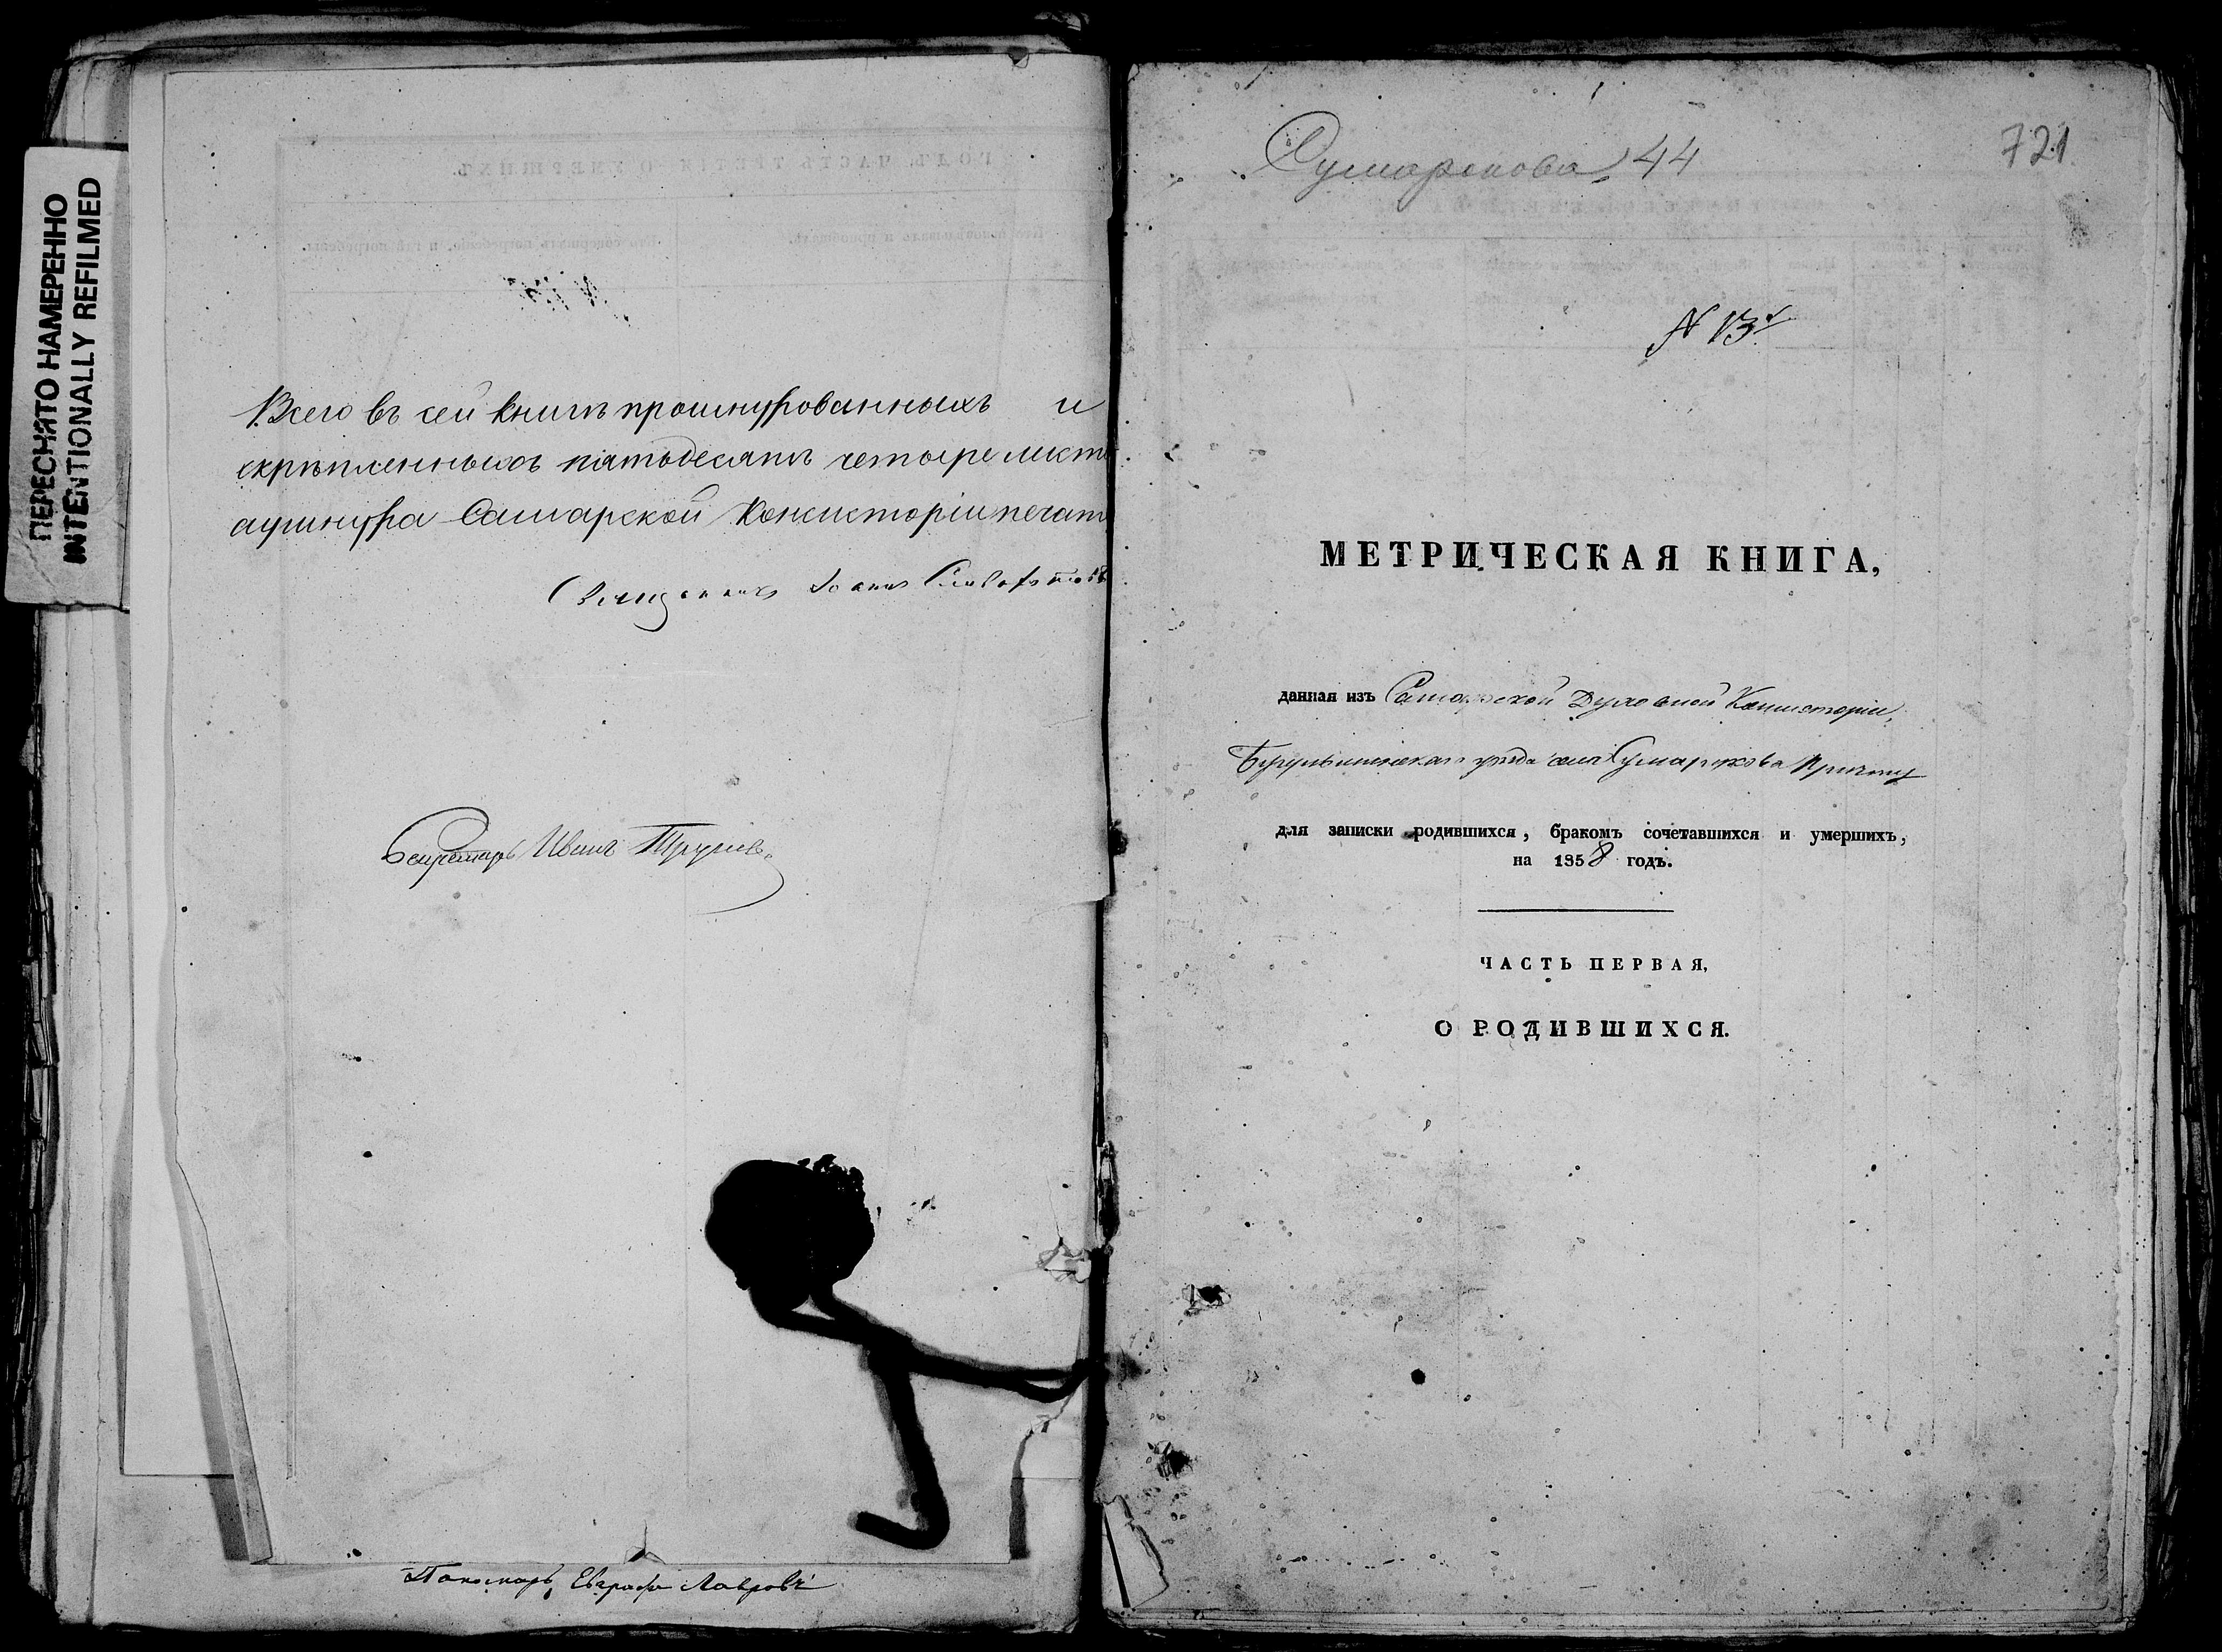 ПЕРЕСНЯТО НАМЕРЕННО
INTENTIONALLY REFILMED
Всего въ сей книгѣ прошнурованныхъ и
скрѣпленныхъ пятьдесятъ четыре лист
а у шнура Самарской Консисторіи печат
Священникъ Іоаннъ
Секретарь Иванъ
Пономарь Евграфъ Лавровъ
Сумарокова 44
721
N 13
МЕТРИЧЕСКАЯ КНИГА,
данная изъ Самарской Духовной Консисторіи,
Бугульминскаго уѣзда села Сумарокова Причту
для записки родившихся, бракомъ сочетавшихся и умершихъ,
на 1858 годъ.
ЧАСТЬ ПЕРВАЯ,
О РОДИВШИХСЯ.